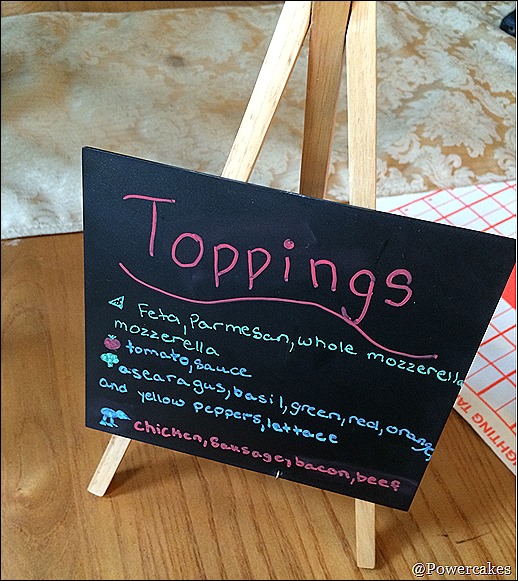 Toppings
Feta, Parmesan, whole mozzerella
mozzerella
tomato, sauce
asearagus, basil, green, red, orange,
and yellow peppers, lettace
chicken, sausage, bacon, beef
IGHTING TA
@Powercakes